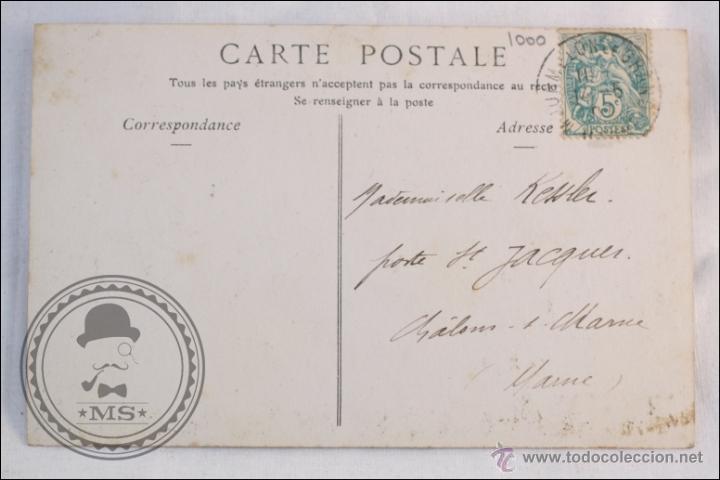 1000
CARTE POSTALE
Tous les pays étrangers n'acceptent pas la correspondance au recto
Se renseigner à la poste
Correspondance
Adresse
5c
POSTES
Mademoiselle Kessler.
porte St Jacques.
Châlons-s-Marne
(Marne)
MS
www.todocoleccion.net